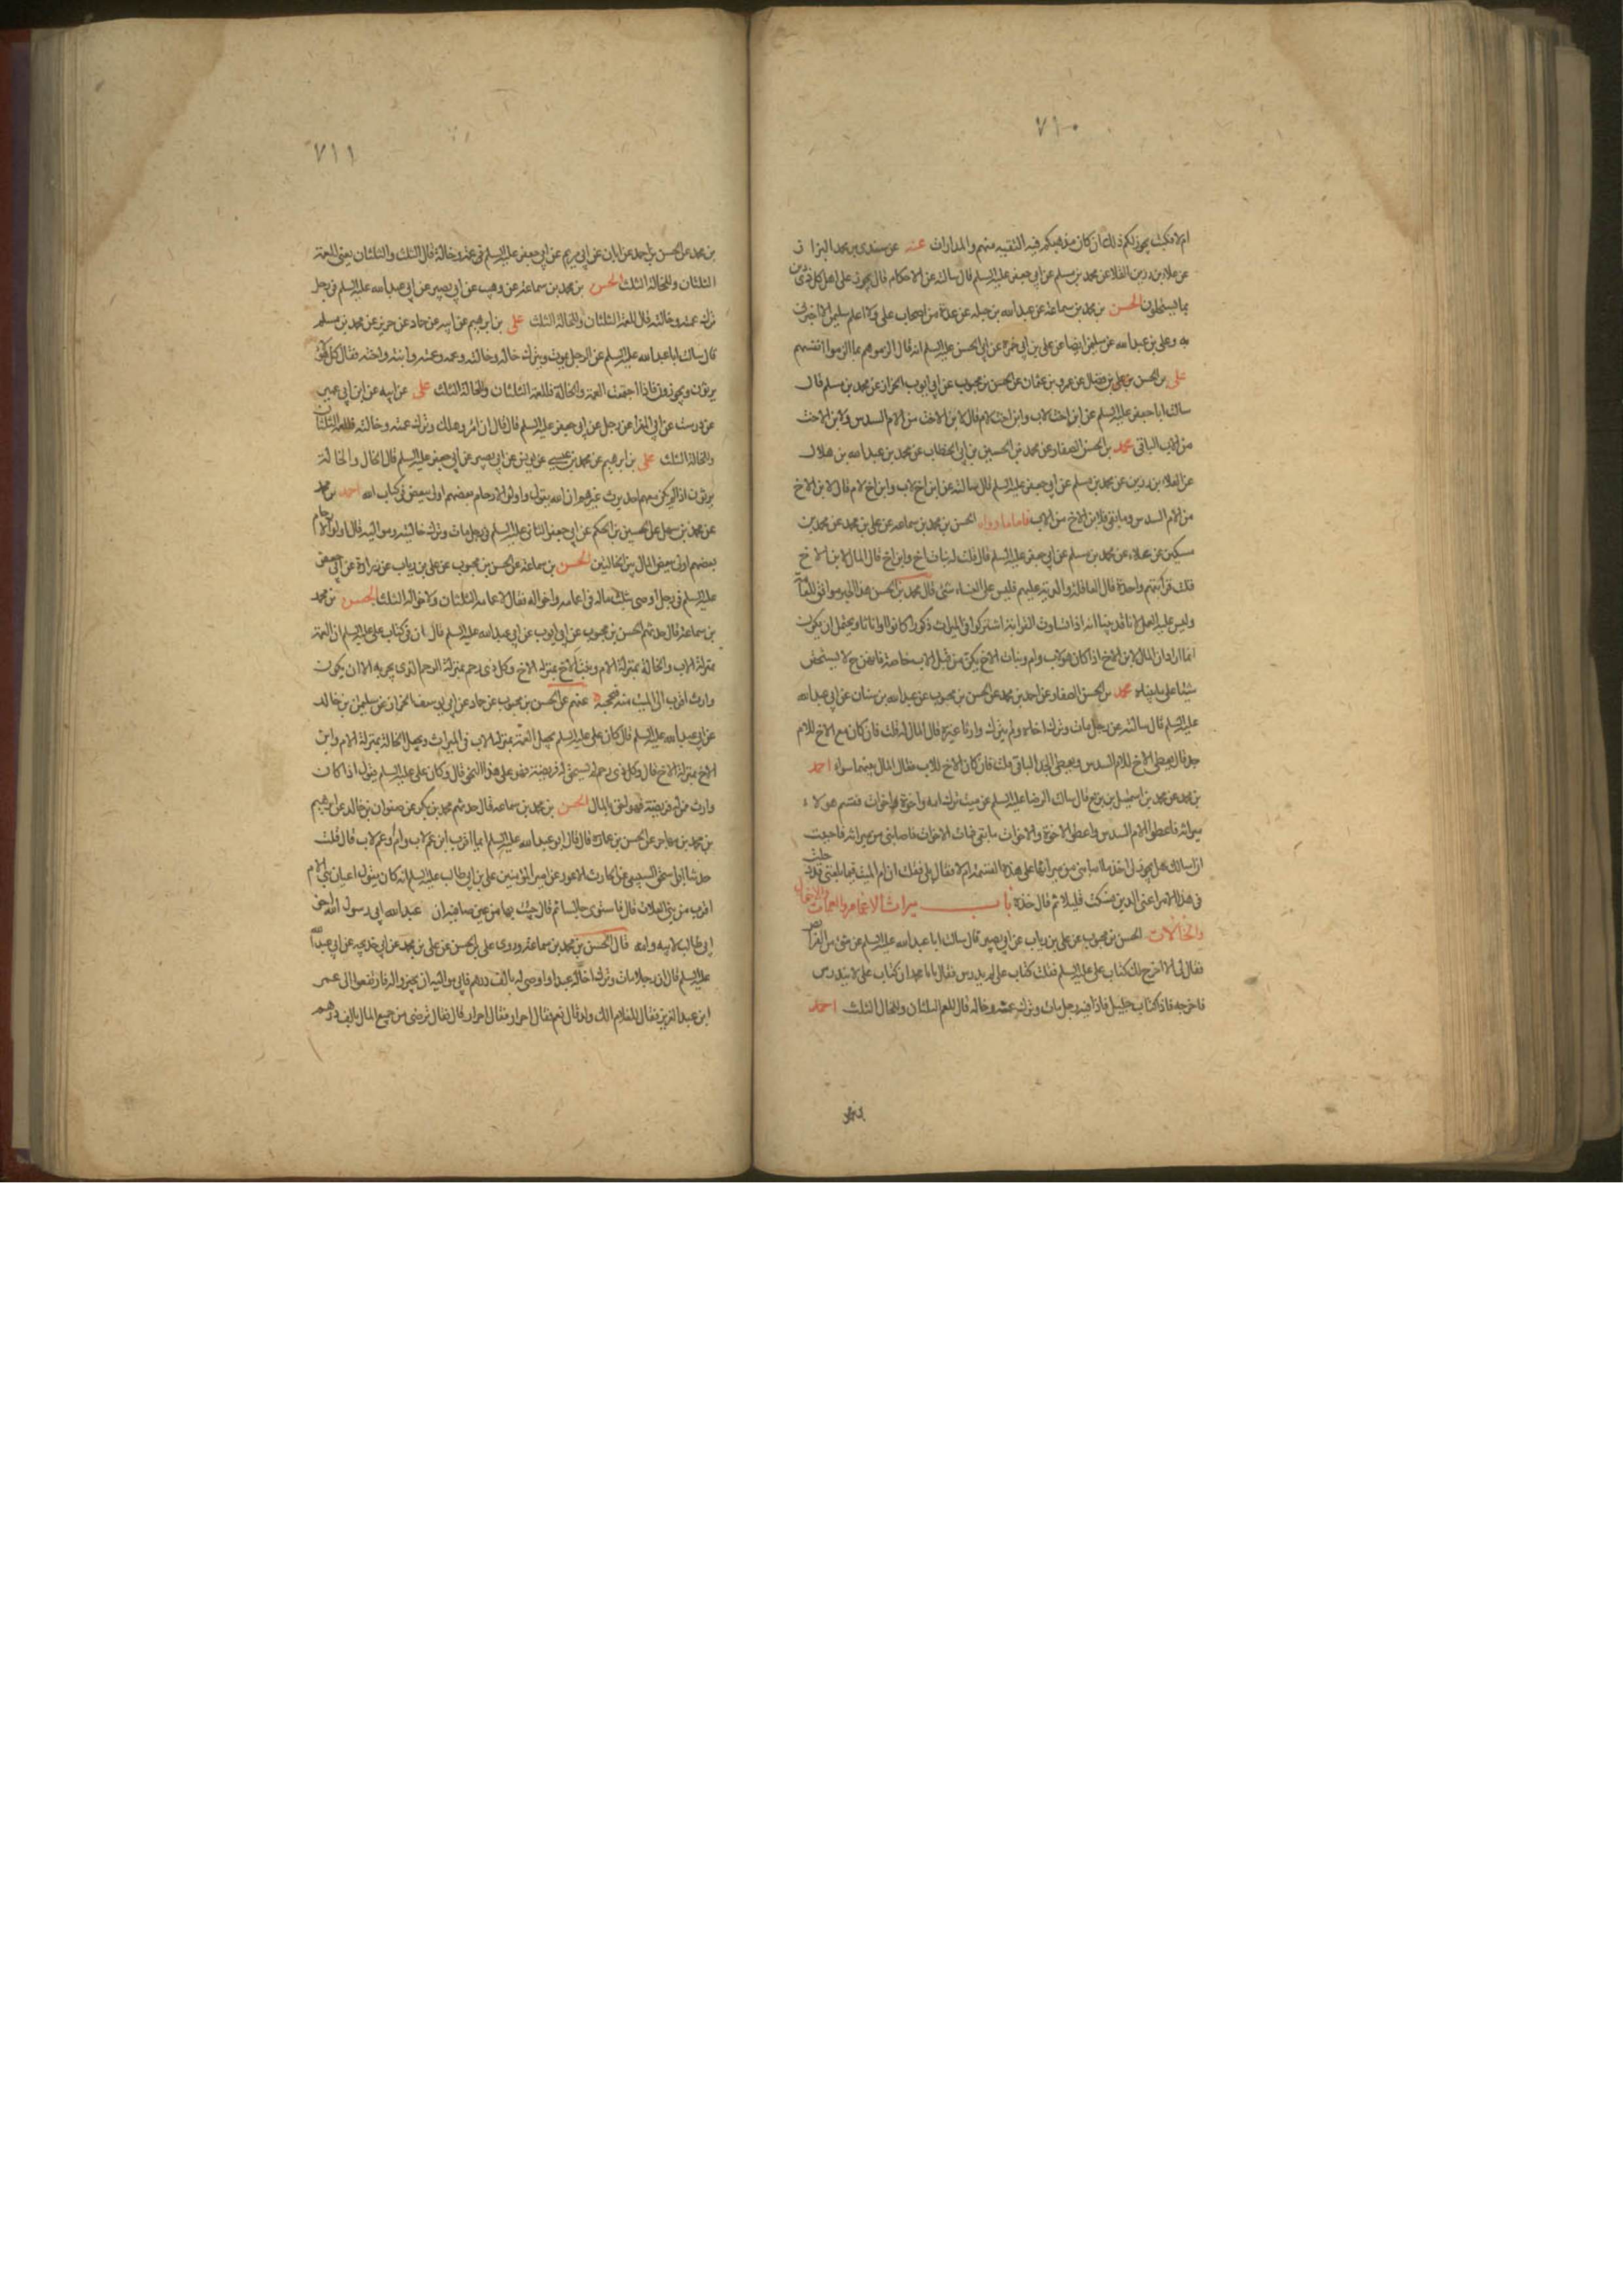 ٧١٠
ام لا فكتب يجوز لكم ذلك ان كان مذهبكم فيه التقية منهم والمدارات عنه عن سندى بن محمد البزاز
عن علاء بن رزين القلا عن محمد بن مسلم عن ابى جعفر عليه السلم قال سالته عن الاحكام قال يجوز على اهل كل ذى دين
بما يستحلون الحسن بن محمد بن سماعة عن عبد الله بن جبله عن عدة من اصحاب على ولا اعلم سليمن الا اخبرنى
به وعلى بن عبد الله عن سليمن ايضا عن على بن ابى حمزه عن ابى الحسن عليه السلم انه قال الزموهم بما الزموا انفسهم
على بن الحسن بن على بن فضال عن عمرو بن عثمان عن الحسن بن محبوب عن ابى ايوب الخزاز عن محمد بن مسلم قال
سالت ابا جعفر عليه السلم عن ابن اخت لاب وابن اخت لام قال لابن الاخت من الام السدس ولابن الاخت
من الاب الباقى محمد بن الحسن الصفار عن محمد بن الحسين بن ابى الخطاب عن محمد بن عبد الله بن هلال
عن العلاء بن رزين عن محمد بن مسلم عن ابى جعفر عليه السلم قال سالته عن ابن اخ لاب وابن اخ لام قال لابن الاخ
من الام السدس وما بقى فلابن الاخ من الاب فاما ما رواه الحسن بن محمد بن سماعه عن على بن محمد عن محمد بن
سكين عن علاء عن محمد بن مسلم عن ابى جعفر عليه السلم قال قلت له بنات اخ وابن اخ قال المال لابن الاخ
قلت قرابتهم واحدة قال العاقلة والدية عليهم فليس على النساء شئ قال محمد بن الحسن هذا الخبر موافق للعامة
وليس عليه العمل لانا قد بينا انه اذا تساوت القرابة اشتركوا فى الميراث ذكورا كانوا او اناثا ويحتمل ان يكون
انما اراد ان المال لابن الاخ اذا كان هو لاب وام وبنات الاخ يكن من قبل الاب خاصة فانهن ح لا يستحقن
شيئا على ما بيناه محمد بن الحسن الصفار عن احمد بن محمد عن الحسن بن محبوب عن عبد الله بن سنان عن ابى عبد الله
عليه السلم قال سالته عن رجل مات وترك اخاه ولم يترك وارثا غيره قال المال له قلت فان كان مع الاخ للام
جد قال يعطى الاخ للام السدس ويعطى الجد الباقى قلت فان كان الاخ للاب فقال المال بينهما سواء احمد
بن محمد عن محمد بن اسمعيل بن بزيع قال سالت الرضا عليه السلم عن ميت ترك امه واخوة واخوات فقسم هولاء
ميراثه فاعطوا الام السدس واعطوا الاخوة والاخوات ما بقى فمات الاخوات فاصابنى من ميراثه فاحببت
ان اسالك هل يجوز لى اخذ ما اصابنى من ميراثها على هذه القسمة ام لا فقال بلى فقلت ان ام الميت فيما بلغنى قد دخلت
فى هذا الامر اعنى الدين فسكت قليلا ثم قال خذه باب ميراث الاعمام والعمات والاخوال
والخالات الحسن بن محبوب عن على بن رياب عن ابى بصير قال سالت ابا عبد الله عليه السلم عن شئ من الفرايض
فقال لى الا اخرج لك كتاب على عليه السلم فقلت كتاب على لم يدرس فقال يابا محمد ان كتاب على لا يندرس
فاخرجه فاذا كتاب جليل فاذا فيه رجل مات وترك عمه وخاله قال للعم الثلثان وللخال الثلث احمد
بن محمد
٧١١
بن محمد عن الحسن بن احمد عن ابان عن ابى مريم عن ابى جعفر عليه السلم فى عمة وخالة قال الثلث والثلثان يعنى للعمة
الثلثان وللخالة الثلث الحسن بن محمد بن سماعة عن وهيب عن ابى بصير عن ابى عبد الله عليه السلم فى رجل
ترك عمته وخالته قال للعمة الثلثان وللخالة الثلث على بن ابرهيم عن ابيه عن حماد عن حريز عن محمد بن مسلم
قال سالت ابا عبد الله عليه السلم عن الرجل يموت ويترك خاله وخالته وعمه وعمته وابنته واخته فقال كل هولاء
يرثون ويحوزون فاذا اجتمعت العمة والخالة فللعمة الثلثان وللخالة الثلث على عن ابيه عن ابن ابى عمير
عن درست عن ابى المغرا عن رجل عن ابى جعفر عليه السلم قال قال ان امرؤ هلك وترك عمته وخالته فللعمة الثلثان
وللخالة الثلث على بن ابرهيم عن محمد بن عيسى عن يونس عن ابى بصير عن ابى جعفر عليه السلم قال الخال والخالة
يرثون اذا لم يكن معهم احد يرث غيرهم ان الله يقول واولوا الارحام بعضهم اولى ببعض فى كتاب الله احمد بن محمد
عن محمد بن سهل عن الحسين بن الحكم عن ابى جعفر الثانى عليه السلم فى رجل مات وترك خالتيه ومواليه قال اولوا الارحام
بعضهم اولى ببعض المال بين الخالتين الحسن بن سماعة عن الحسن بن محبوب عن على بن رياب عن زرارة عن ابى جعفر
عليه السلم فى رجل اوصى بثلث ماله فى اعمامه واخواله فقال لاعمامه الثلثان ولاخواله الثلث الحسن بن محمد
بن سماعة قال حدثهم الحسن بن محبوب عن ابى ايوب عن ابى عبد الله عليه السلم قال ان فى كتاب على عليه السلم ان العمة
بمنزلة الاب والخالة بمنزلة الام وبنت الاخ بمنزلة الاخ وكل ذى رحم بمنزلة الرحم الذى يجر به الا ان يكون
وارث اقرب الى الميت منه فيحجبه عنهم عن الحسن بن محبوب عن حماد عن ابى يوسف الخزاز عن سليمن بن خالد
عن ابى عبد الله عليه السلم قال كان على عليه السلم يجعل العمة بمنزلة الاب فى الميراث ويجعل الخالة بمنزلة الام وابن
الاخ بمنزلة الاخ قال وكل ذى رحم لم يستحق له فريضة فهو على هذا النحو قال وكان على عليه السلم يقول اذا كان
وارث ممن له فريضة فهو احق بالمال الحسن بن محمد بن سماعه قال حدثهم محمد بن بكر عن صفوان بن خالد عن ابرهيم
بن محمد بن مهاجر عن الحسن بن عماره قال قال ابو عبد الله عليه السلم ايما اقرب ابن عم لاب وام او عم لاب قال قلت
حدثنا ابو اسحق السبيعى عن الحارث الاعور عن امير المؤمنين على بن ابى طالب عليه السلم انه كان يقول اعيان بنى الام
اقرب من بنى العلات قال فاستوى جالسا ثم قال جئت بها من عين صافية ان عبد الله ابى رسول الله اخو
ابى طالب لابيه وامه قال الحسن بن محمد بن سماعة وروى على بن الحسن عن على بن محمد عن ابى خديجه عن ابى عبد الله
عليه السلم قال ان رجلا مات وترك اخا له عبدا واوصى له بالف درهم فابى مواليه ان يجيزوا له فارتفعوا الى عمر
ابن عبد العزيز فقال للغلام الك ولد قال نعم فقال احرار فقال احرار قال فقال ترضى من جميع المال بالف درهم